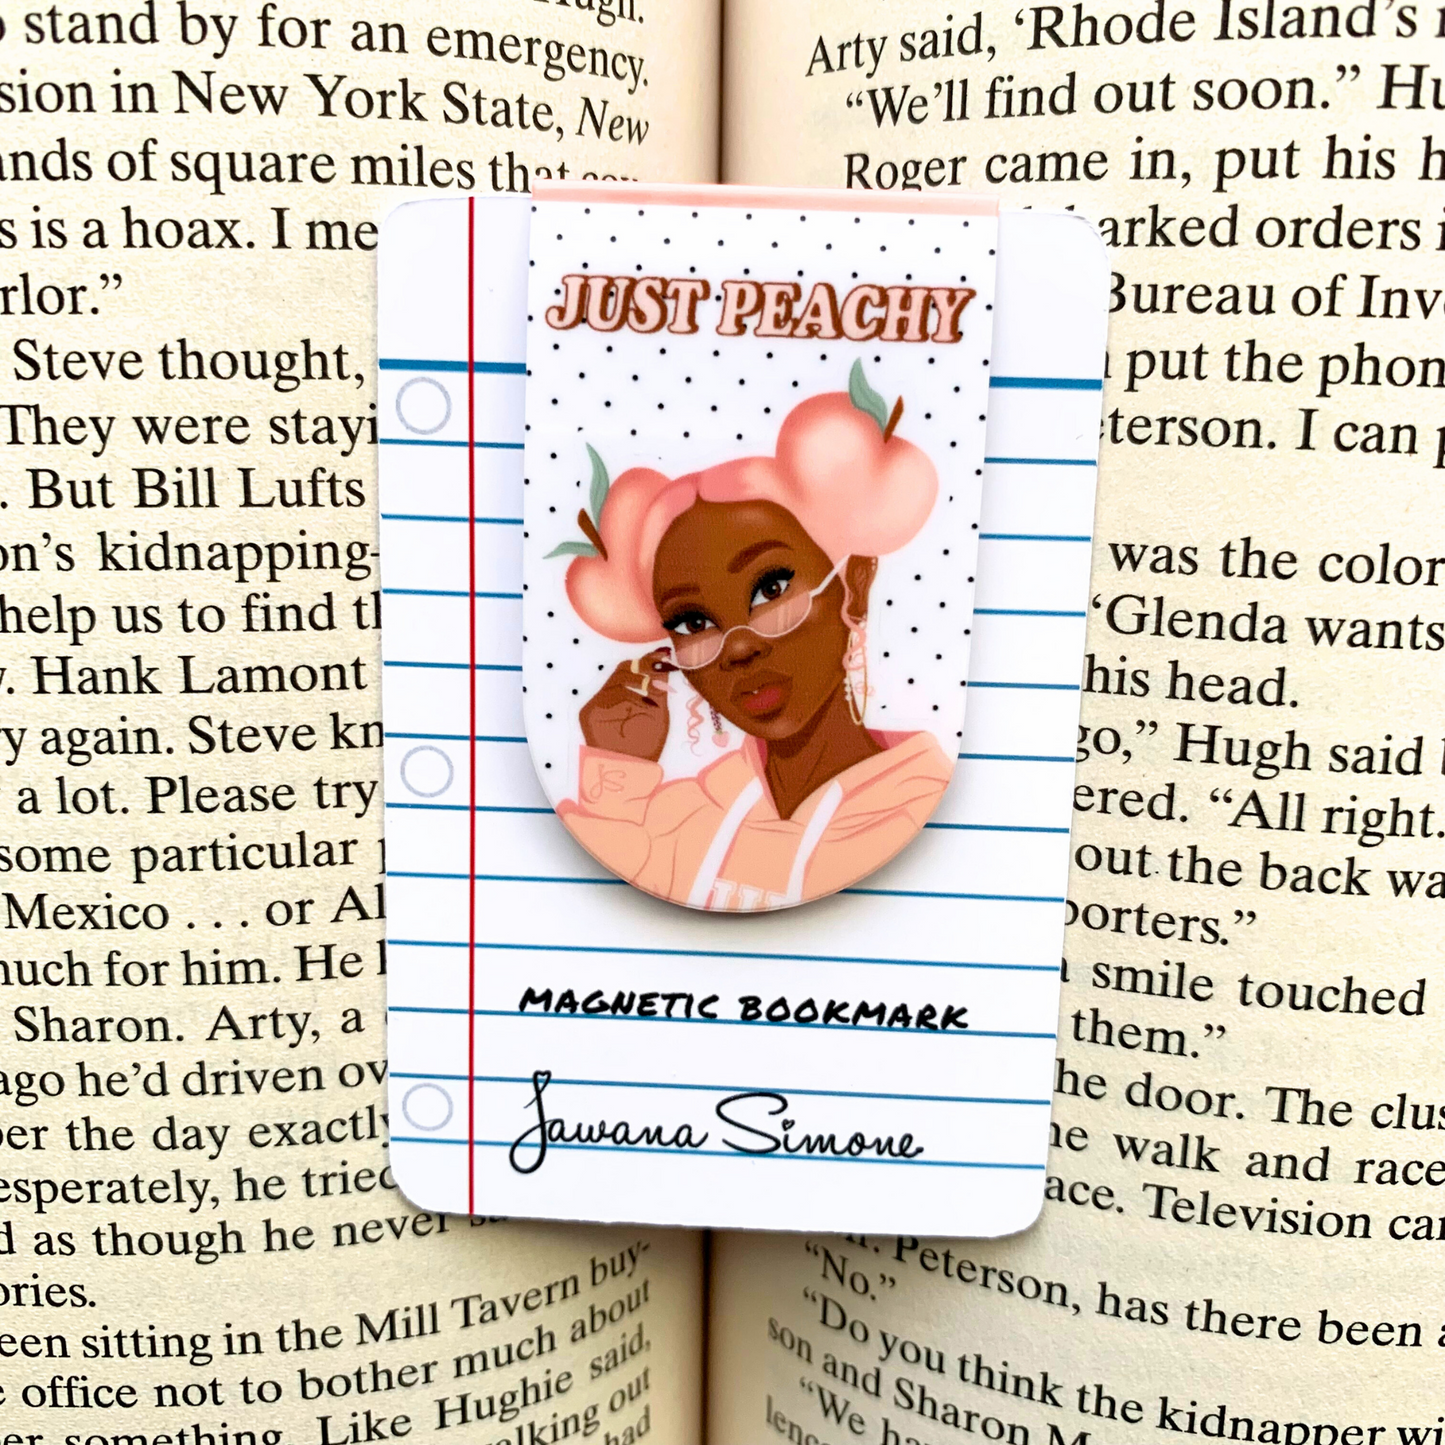 stand by for an emergency.
sion in New York State, New
ands of square miles that
s is a hoax. I me
rlor.”
Steve thought,
They were stayi
. But Bill Lufts
on’s kidnapping-
help us to find th
. Hank Lamont
y again. Steve kn
a lot. Please try
some particular
Mexico . . . or Al
much for him. He
Sharon. Arty, a
ago he’d driven ov
per the day exactly
esperately, he tried
d as though he never
ories.
een sitting in the Mill Tavern buy-
office not to bother much about
er something. Like Hughie said,
alking out
had
Arty said, ‘Rhode Island’s
“We’ll find out soon.” Hu
Roger came in, put his h
barked orders i
Bureau of Inve
put the phon
eterson. I can
was the color
‘Glenda wants
his head.
go,” Hugh said
ered. “All right.
out the back wa
porters.”
smile touched
them.”
he door. The clus
he walk and race
ace. Television car
Peterson, has there been a
“No.”
“Do you think the kidnapper wi
son and Sharon
“We ha
JUST PEACHY
JS
MAGNETIC BOOKMARK
Jawana Simone